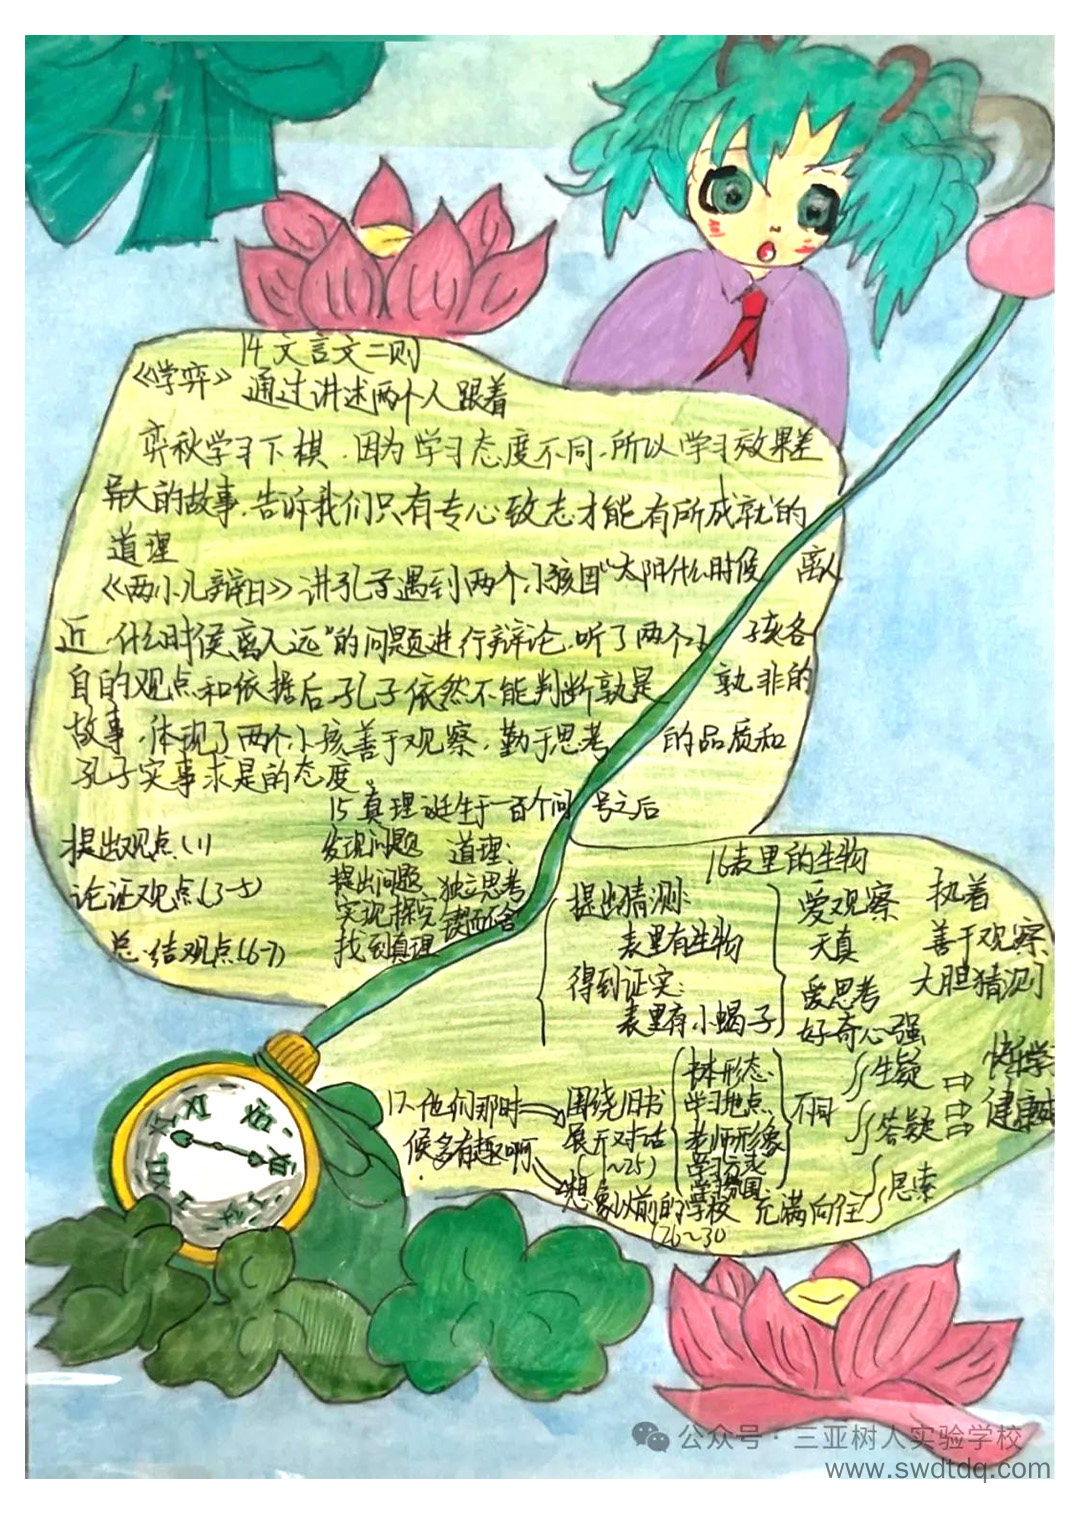 14 文言文二则
《学弈》 通过讲述两个人跟着
奕秋学习下棋，因为学习态度不同，所以学习效果差
异大的故事，告诉我们只有专心致志才能有所成就的
道理
《两小儿辩日》讲孔子遇到两个小孩因“太阳什么时候 离人
近，什么时候离人远”的问题进行辩论，听了两个小 孩各
自的观点和依据后孔子依然不能判断孰是 孰非的
故事，体现了两个小孩善于观察，勤于思考 的品质和
孔子实事求是的态度。
15 真理诞生于一百个问 号之后
提出观点(1)
论证观点(3-5)
总结观点(6-7)
发现问题
提出问题
实现探究
找到真理
道理：
独立思考
锲而不舍
16 表里的生物
提出猜测：
表里有生物
得到证实：
表里有小蝎子
爱观察
天真
爱思考
好奇心强
执着
善于观察
大胆猜测
17 他们那时
候多有趣啊
围绕旧书
展开对话
(1~25)
书本形态
学习地点
老师形象
学习方式
学习氛围
不同
想象以前的学校 充满向往
(26~30
生疑
答疑
思索
快乐学
健康成
公众号 · 三亚树人实验学校
www.swdtdq.com